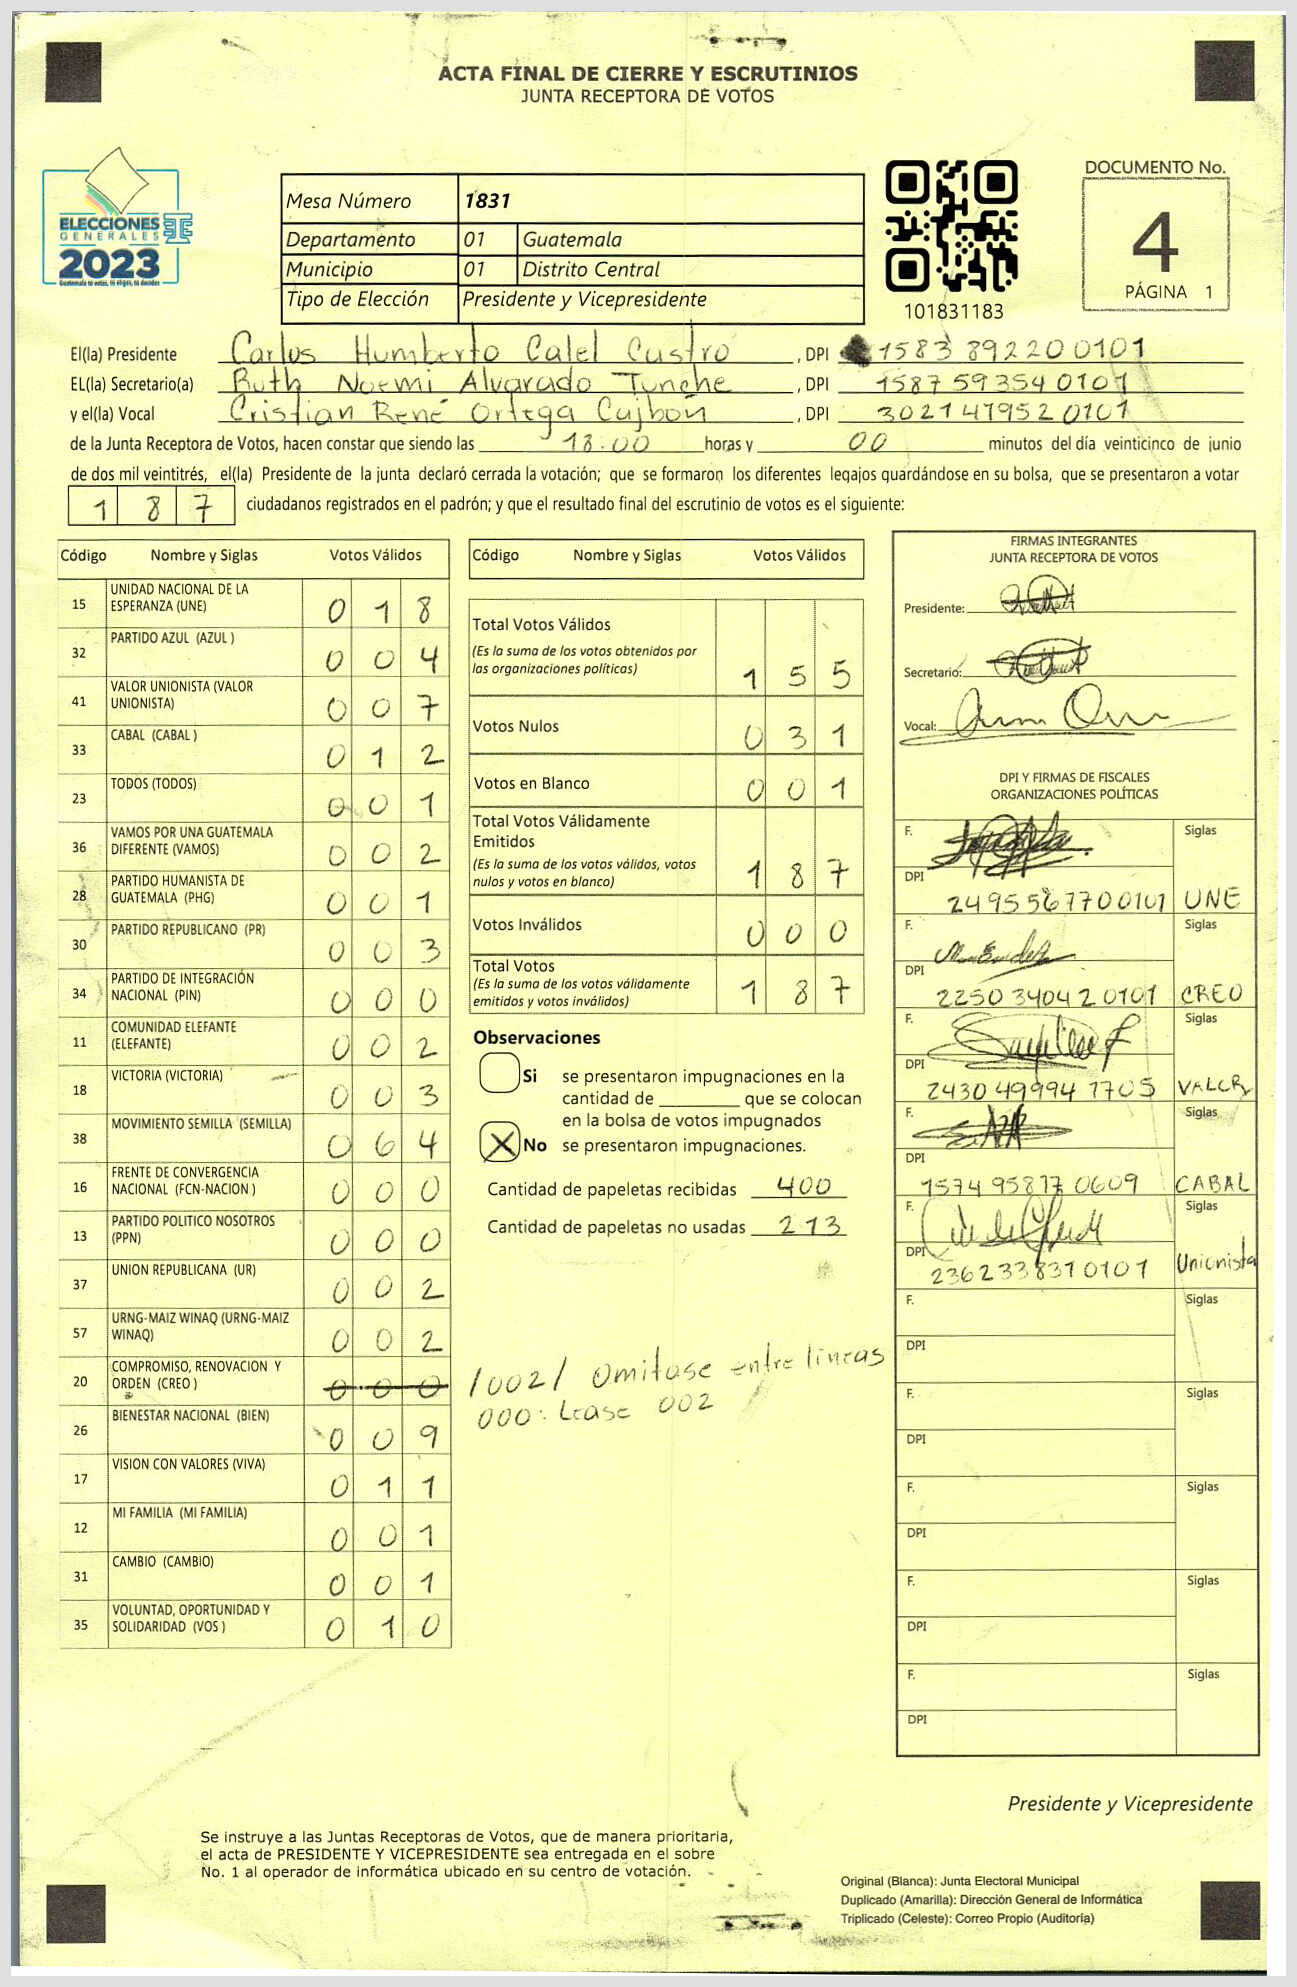 ACTA FINAL DE CIERRE Y ESCRUTINIOS
JUNTA RECEPTORA DE VOTOS
ELECCIONES
GENERALES
2023
Guatemala tú votas, tú eliges, tú decides
Mesa Número 1831
Departamento 01 Guatemala
Municipio 01 Distrito Central
Tipo de Elección Presidente y Vicepresidente
101831183
DOCUMENTO No.
4
PÁGINA 1
El(la) Presidente Carlos Humberto Calel Castro , DPI 1583 89220 0101
EL(la) Secretario(a) Ruth Noemi Alvarado Tunche , DPI 1587 59354 0101
y el(la) Vocal Cristian René Ortega Cajbón , DPI 3021 47952 0101
de la Junta Receptora de Votos, hacen constar que siendo las 18:00 horas y 00 minutos del día veinticinco de junio
de dos mil veintitrés, el(la) Presidente de la junta declaró cerrada la votación; que se formaron los diferentes legajos guardándose en su bolsa, que se presentaron a votar
187 ciudadanos registrados en el padrón; y que el resultado final del escrutinio de votos es el siguiente:
Código Nombre y Siglas Votos Válidos
15 UNIDAD NACIONAL DE LA ESPERANZA (UNE) 018
32 PARTIDO AZUL (AZUL ) 004
41 VALOR UNIONISTA (VALOR UNIONISTA) 007
33 CABAL (CABAL ) 012
23 TODOS (TODOS) 001
36 VAMOS POR UNA GUATEMALA DIFERENTE (VAMOS) 002
28 PARTIDO HUMANISTA DE GUATEMALA (PHG) 001
30 PARTIDO REPUBLICANO (PR) 003
34 PARTIDO DE INTEGRACIÓN NACIONAL (PIN) 000
11 COMUNIDAD ELEFANTE (ELEFANTE) 002
18 VICTORIA (VICTORIA) 003
38 MOVIMIENTO SEMILLA (SEMILLA) 064
16 FRENTE DE CONVERGENCIA NACIONAL (FCN-NACION ) 000
13 PARTIDO POLITICO NOSOTROS (PPN) 000
37 UNION REPUBLICANA (UR) 002
57 URNG-MAIZ WINAQ (URNG-MAIZ WINAQ) 002
20 COMPROMISO, RENOVACION Y ORDEN (CREO ) 000
26 BIENESTAR NACIONAL (BIEN) 009
17 VISION CON VALORES (VIVA) 011
12 MI FAMILIA (MI FAMILIA) 001
31 CAMBIO (CAMBIO) 001
35 VOLUNTAD, OPORTUNIDAD Y SOLIDARIDAD (VOS ) 010
Código Nombre y Siglas Votos Válidos
Total Votos Válidos 155
(Es la suma de los votos obtenidos por
las organizaciones políticas)
Votos Nulos 031
Votos en Blanco 001
Total Votos Válidamente
Emitidos 187
(Es la suma de los votos válidos, votos
nulos y votos en blanco)
Votos Inválidos 000
Total Votos 187
(Es la suma de los votos válidamente
emitidos y votos inválidos)
Observaciones
Si se presentaron impugnaciones en la
cantidad de ________ que se colocan
en la bolsa de votos impugnados
X No se presentaron impugnaciones.
Cantidad de papeletas recibidas 400
Cantidad de papeletas no usadas 213
/002/ Omitase entre lineas
000: Lease 002
FIRMAS INTEGRANTES
JUNTA RECEPTORA DE VOTOS
Presidente:
Secretario:
Vocal:
DPI Y FIRMAS DE FISCALES
ORGANIZACIONES POLÍTICAS
F. Siglas
DPI 2495567700101 UNE
F. Siglas
DPI 2250 34042 0101 CREO
F. Siglas
DPI 2430 49994 1705 VALOR
F. Siglas
DPI 1574 95817 0609 CABAL
F. Siglas
DPI 2362338310101 Unionista
F. Siglas
DPI
F. Siglas
DPI
F. Siglas
DPI
F. Siglas
DPI
F. Siglas
DPI
Presidente y Vicepresidente
Se instruye a las Juntas Receptoras de Votos, que de manera prioritaria,
el acta de PRESIDENTE Y VICEPRESIDENTE sea entregada en el sobre
No. 1 al operador de informática ubicado en su centro de votación.
Original (Blanca): Junta Electoral Municipal
Duplicado (Amarilla): Dirección General de Informática
Triplicado (Celeste): Correo Propio (Auditoría)